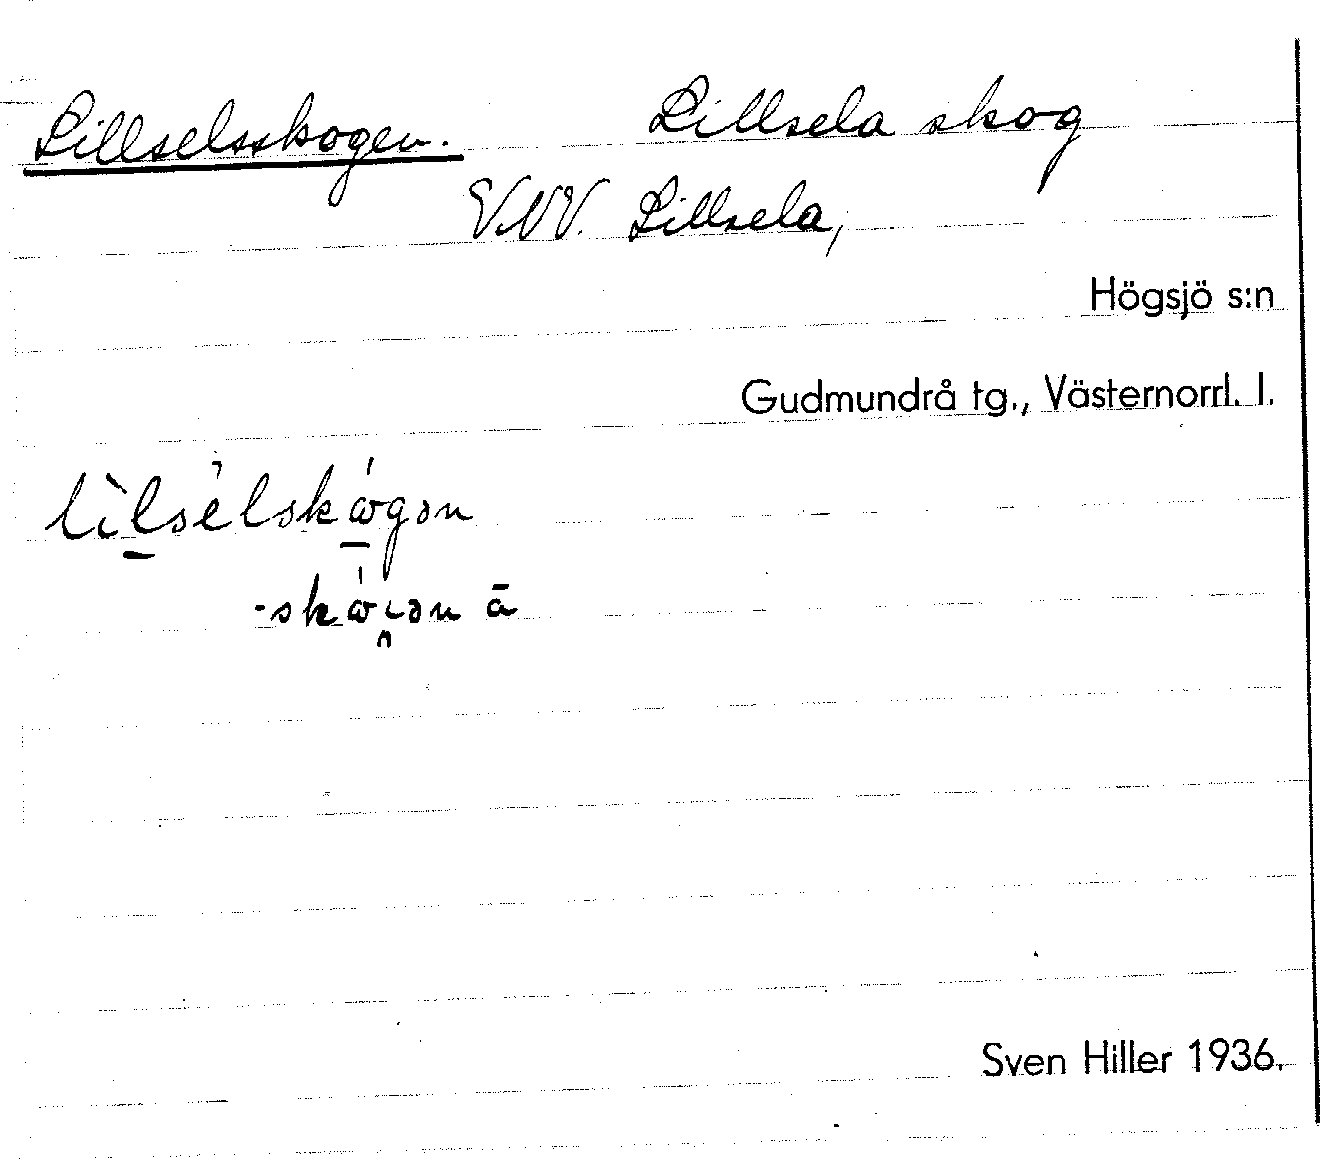 Lillselsskogen. Lillsela skog
V.NV. Lillsela,
Högsjö s:n
Gudmundrå tg., Västernorrl. l.
lìlsèlskógən
-skóɩən ā
Sven Hiller 1936.